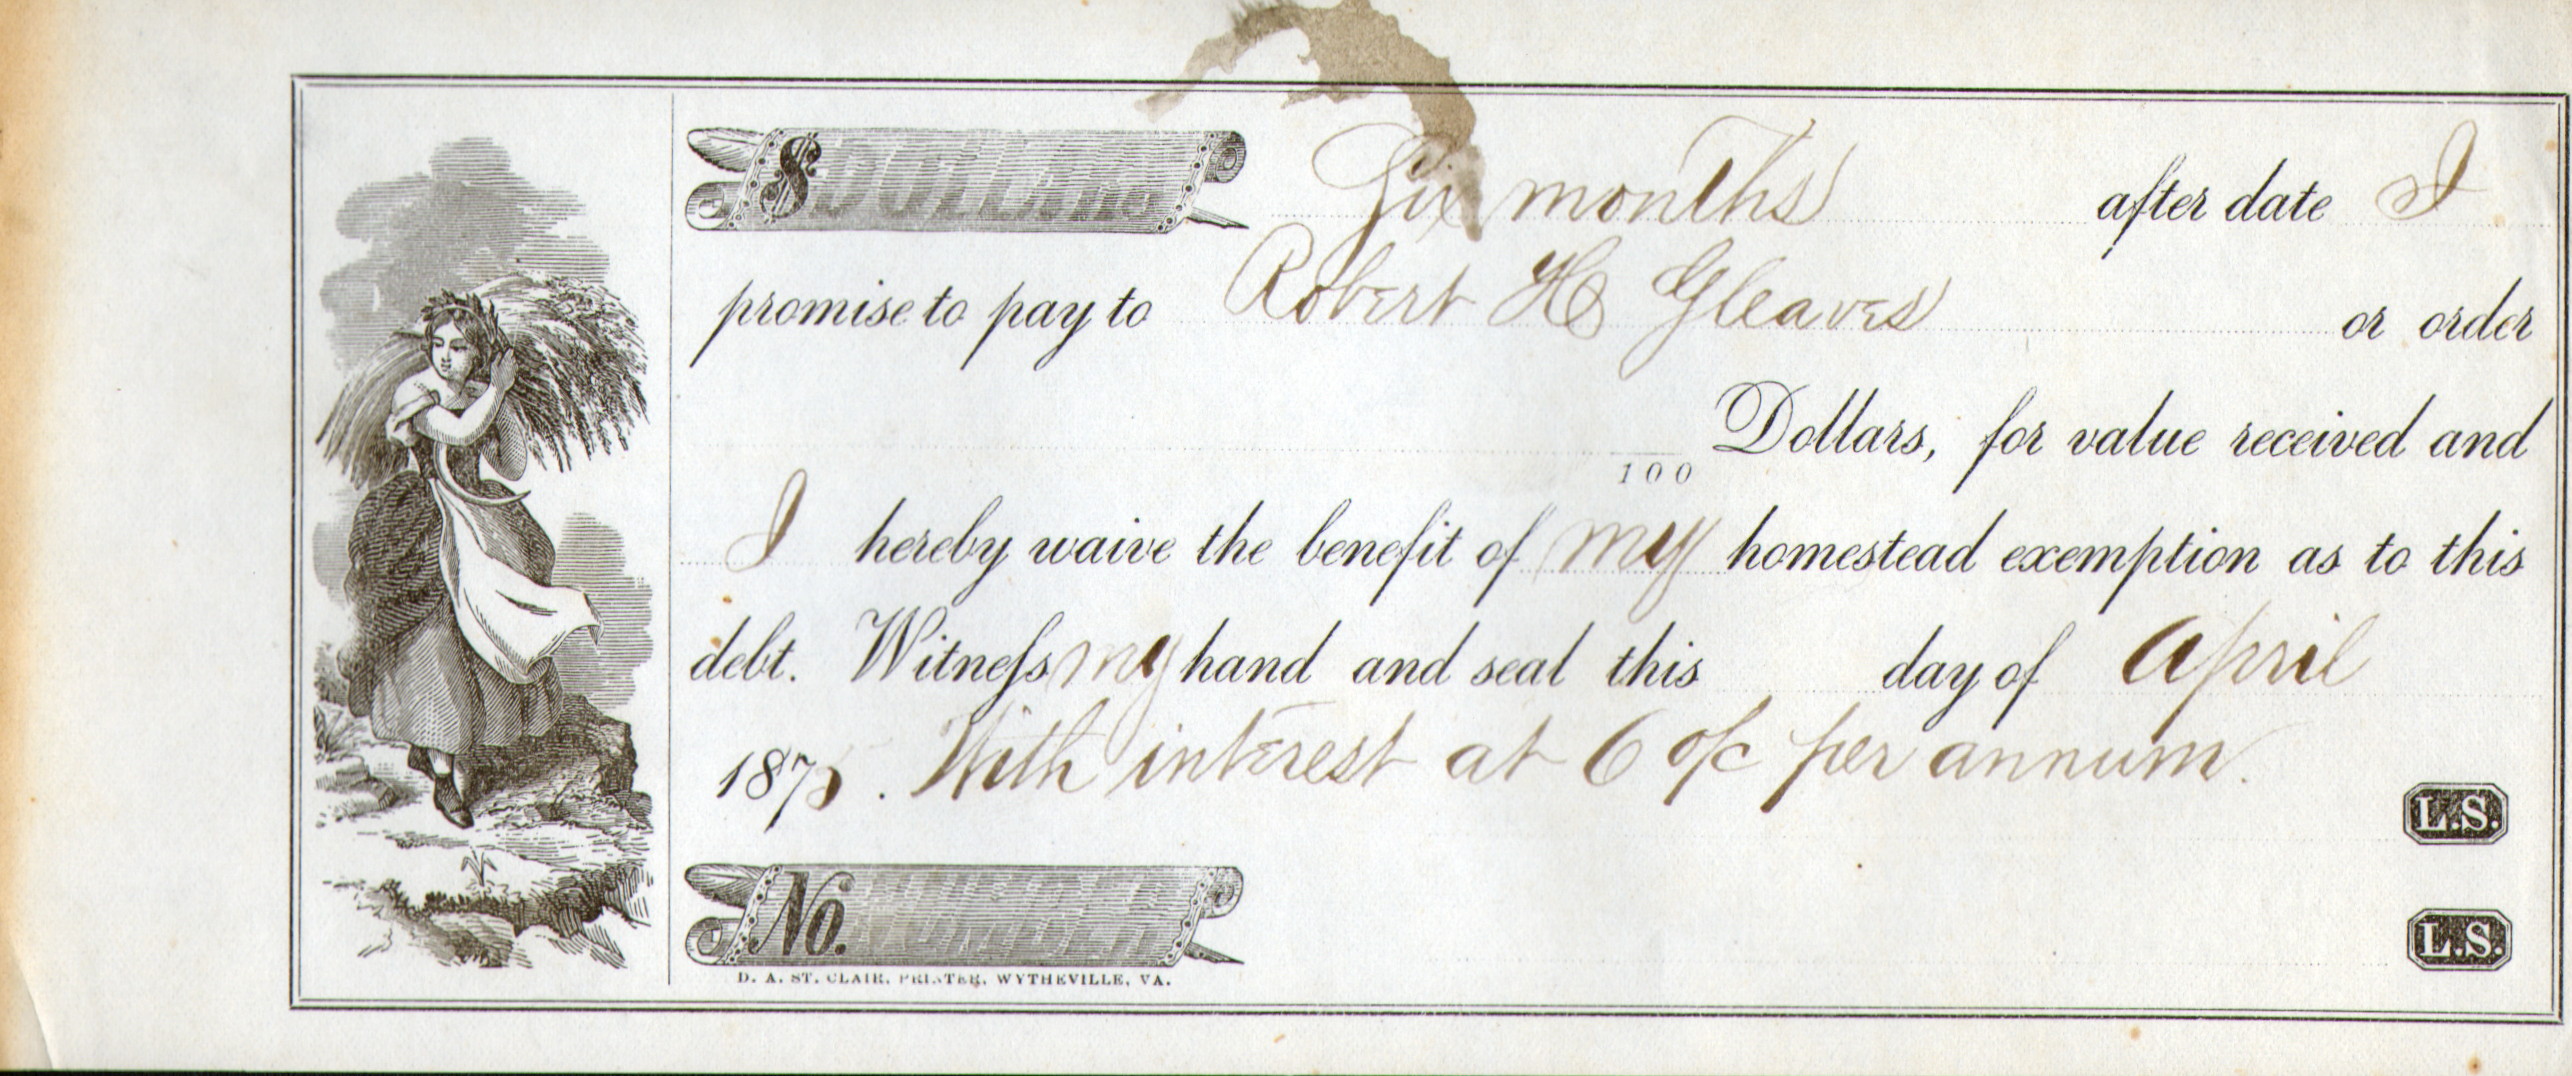 $ DOLLARS Six months after date I
promise to pay to Robert H Gleaves or order
100 Dollars, for value received and
I hereby waive the benefit of my homestead exemption as to this
debt. Witneſs my hand and seal this day of April
1875. With interest at 6 o/c per annum.
L.S.
No. NUMBER
L.S.
D. A. ST. CLAIR, PRINTER, WYTHEVILLE, VA.